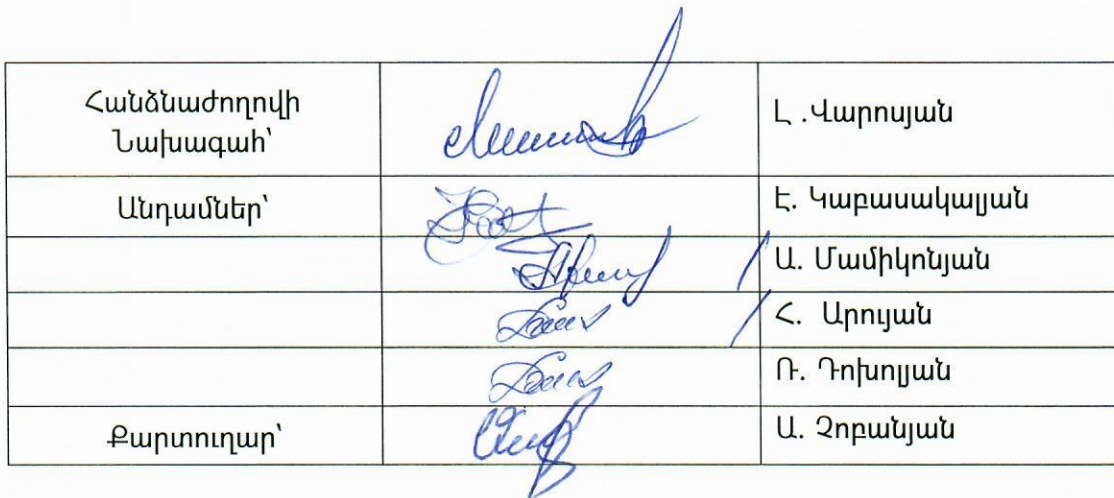 Հանձնաժողովի
Նախագահ՝
Լ .Վարոսյան
Անդամներ՝
Է. Կաբասակալյան
Ա. Մամիկոնյան
Հ. Արույան
Ռ. Դոխոլյան
Քարտուղար՝
Ա. Չոբանյան